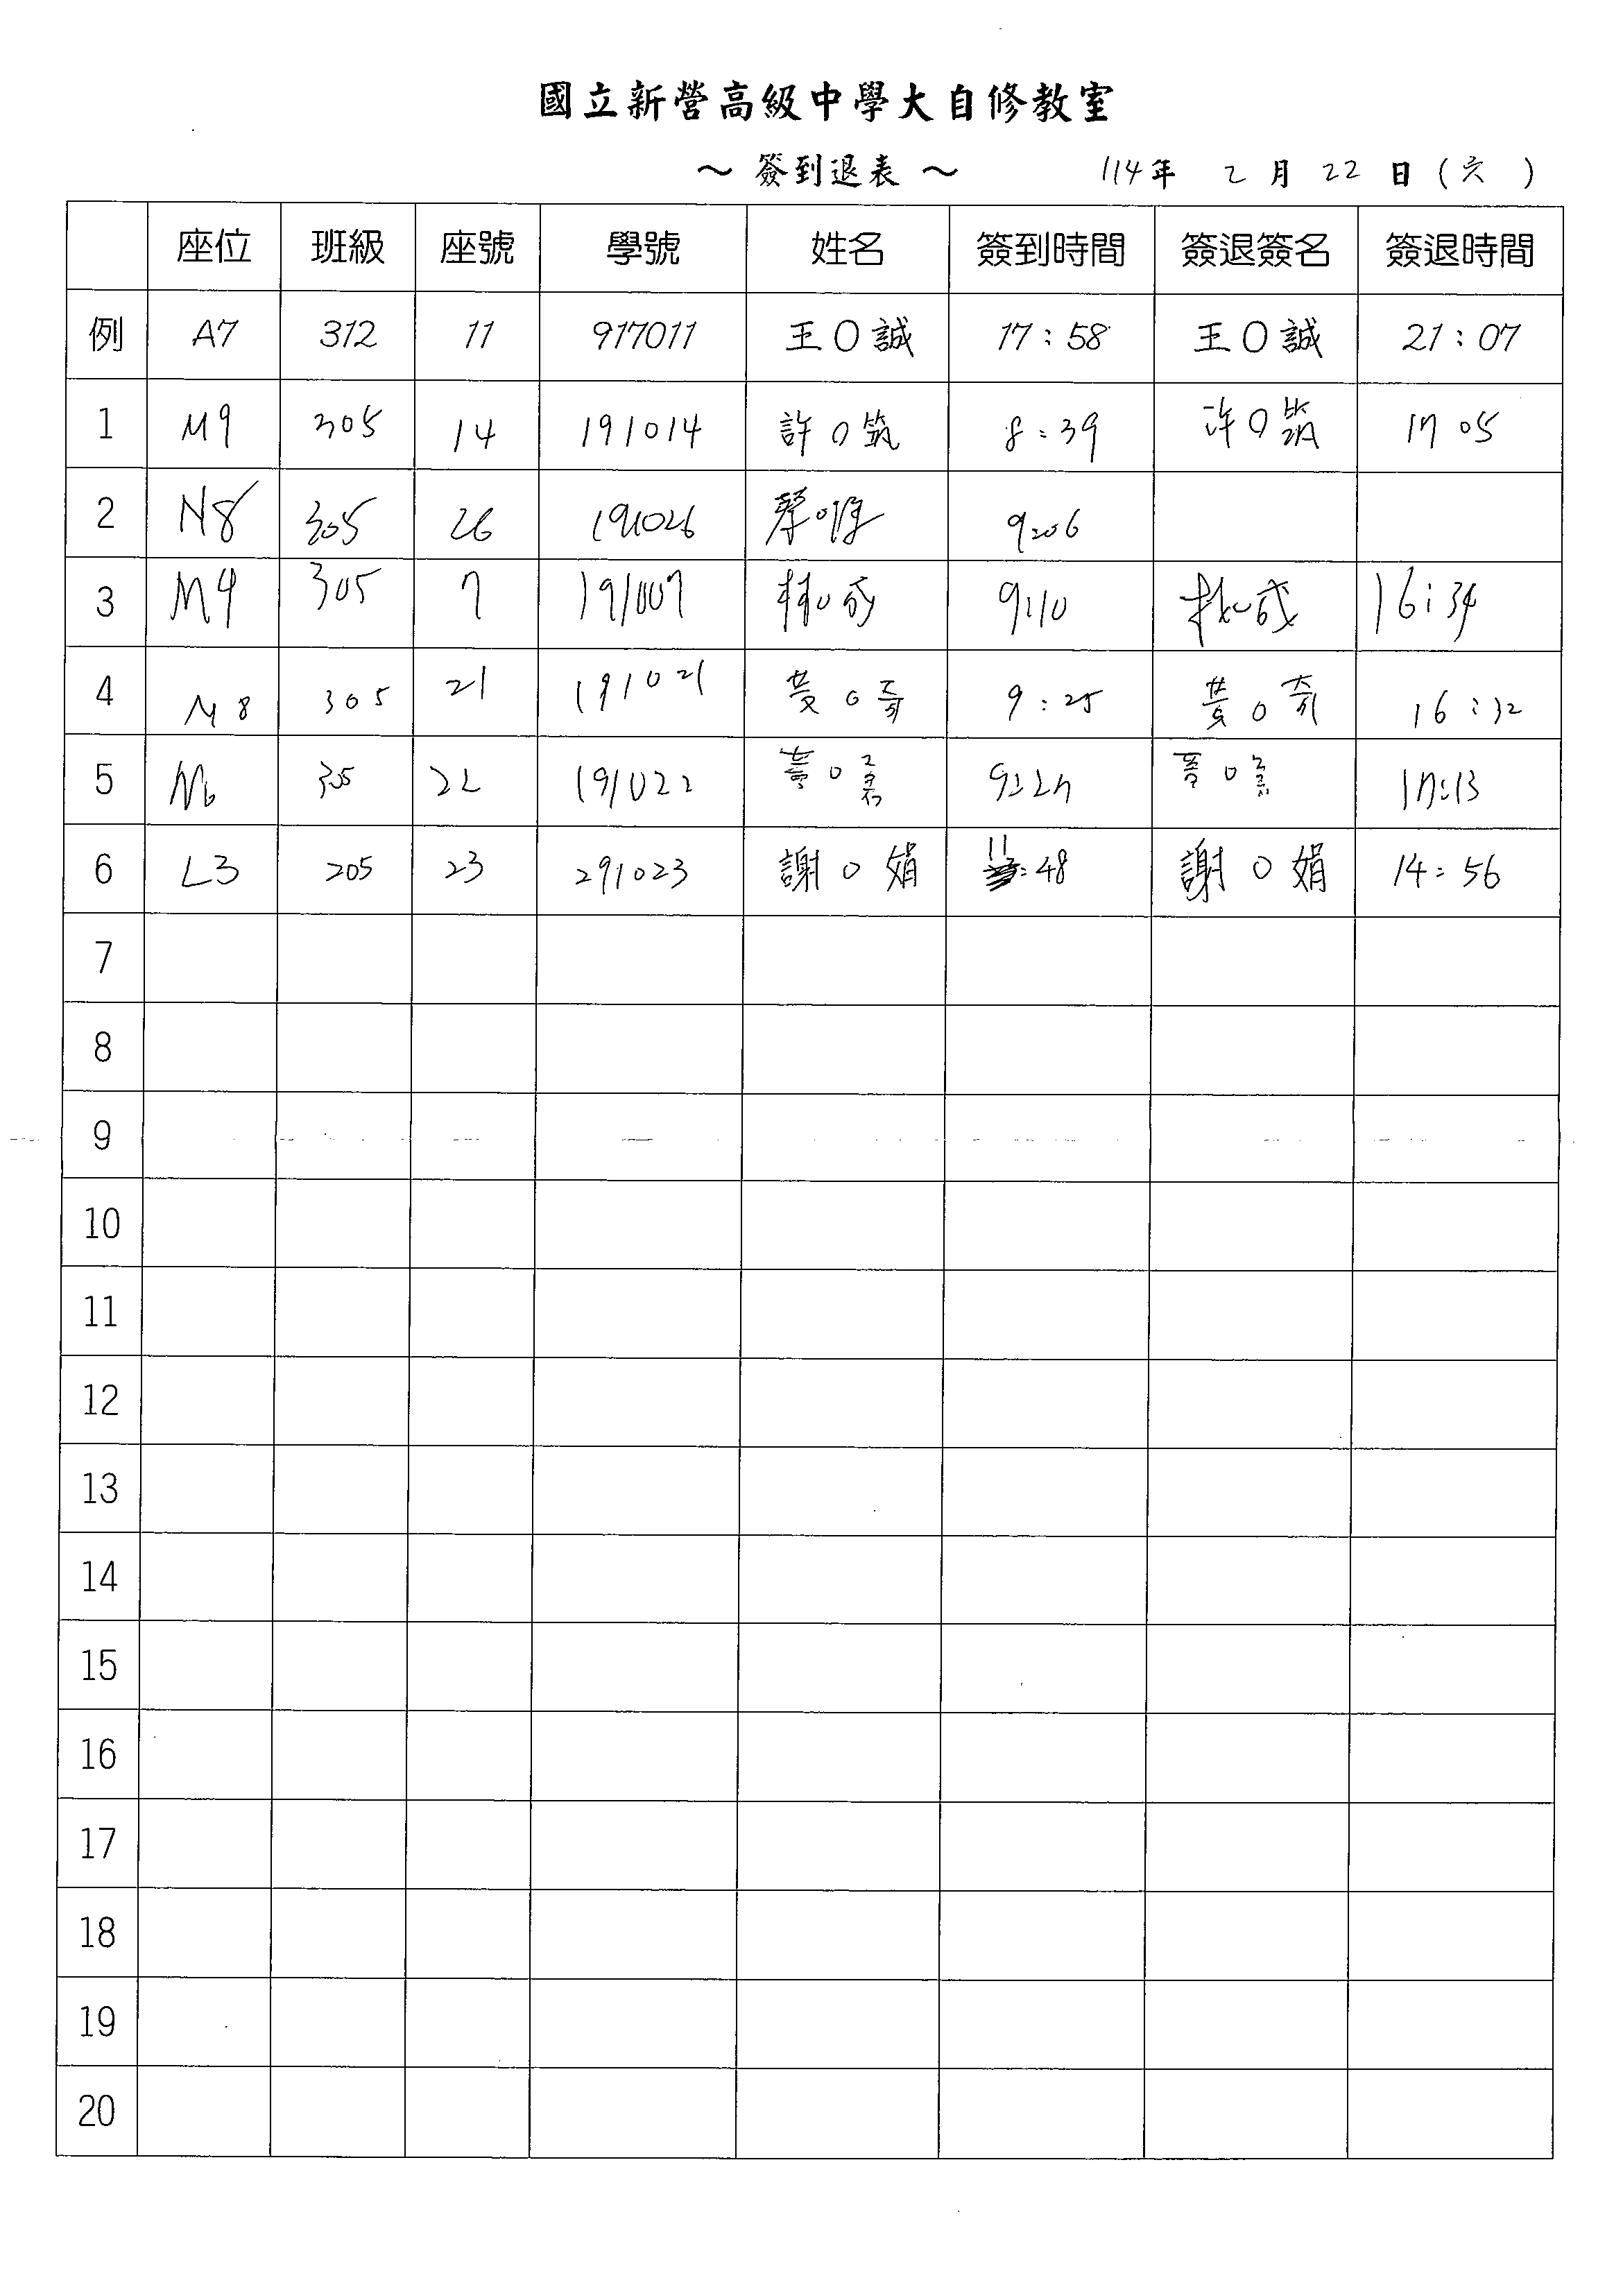 國立新營高級中學大自修教室
～ 簽到退表 ～ 114年 2 月 22 日 (六 )
座位 班級 座號 學號 姓名 簽到時間 簽退簽名 簽退時間
例 A7 312 11 917011 王O誠 17:58 王O誠 21:07
1 M9 305 14 191014 許O筑 8:39 許O筑 17 05
2 N8 305 26 191026 蔡O 9:06
3 M4 305 7 191007 林O成 9:10 林O成 16:34
4 M8 305 21 191021 黃O奇 9:25 黃O奇 16:32
5 M6 305 22 191022 黃O 9:27 黃O 17:13
6 L3 205 23 291023 謝O娟 11:48 謝O娟 14:56
7
8
9
10
11
12
13
14
15
16
17
18
19
20